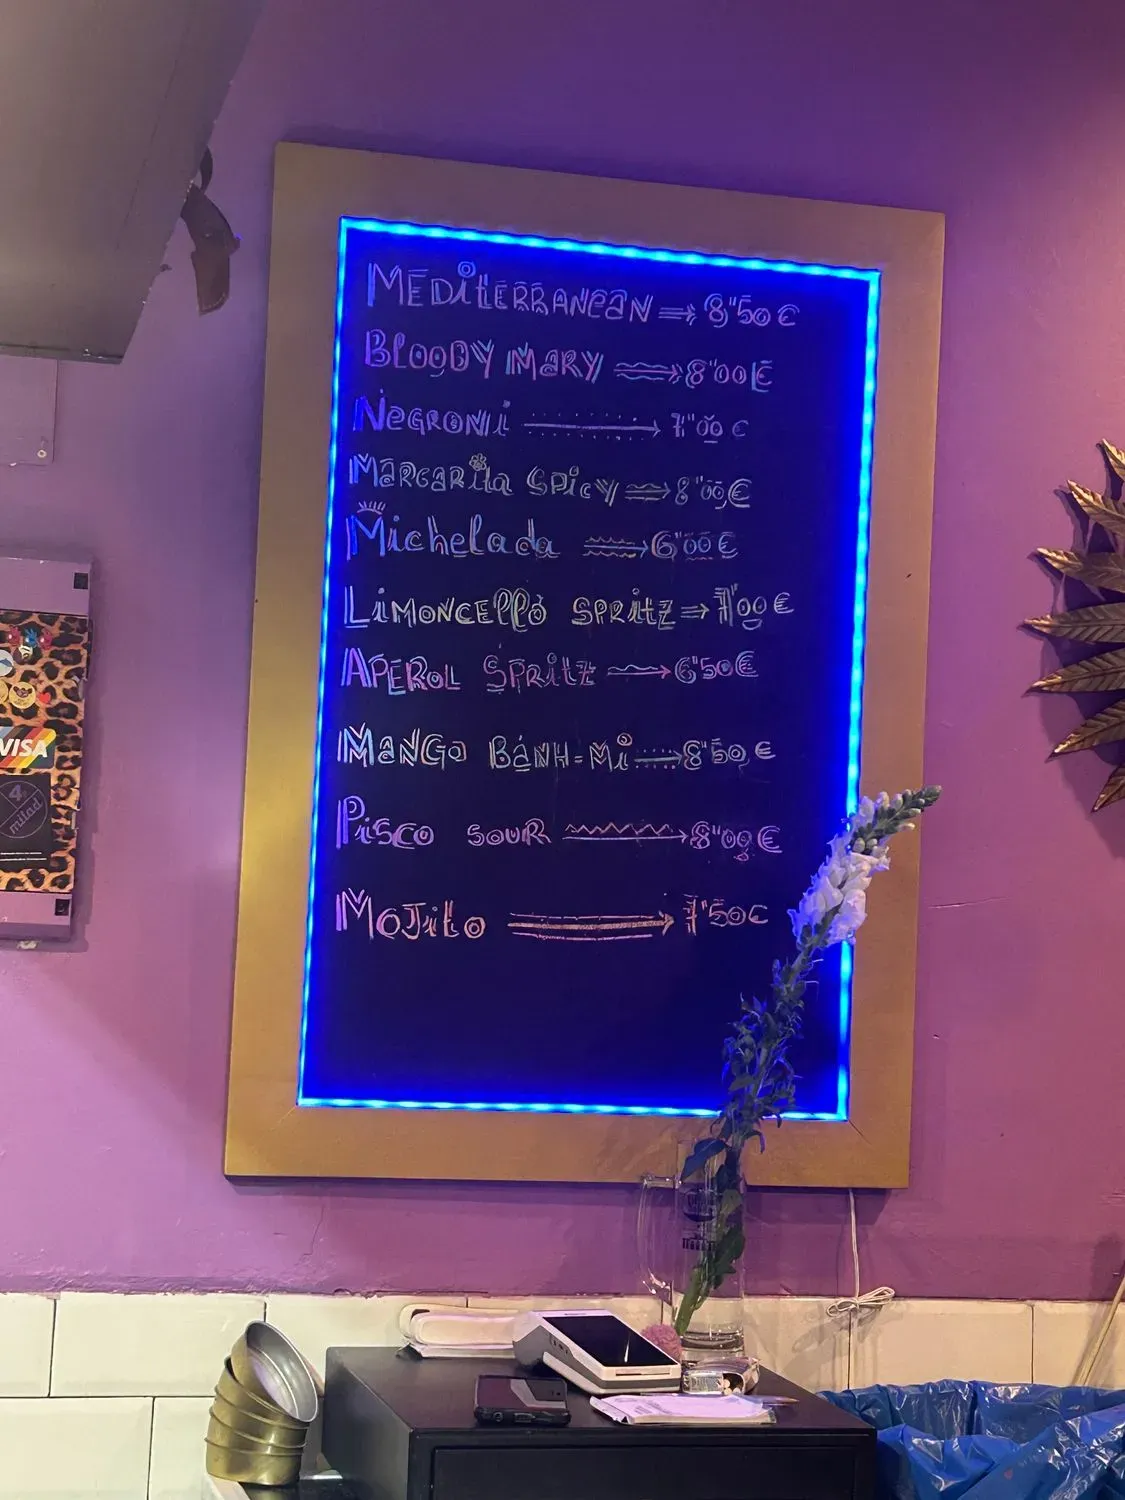 MEDITERRANEAN ⇒ 8"50 €
BLOODY MARY ⇒ 8"00 €
NEGRONI → 7"00 €
MARGARITA SPICY ⇒ 8"00 €
Michelada → 6"00 €
LIMONCELLO SPRITZ ⇒ 7"00 €
APEROL SPRITZ → 6"50 €
MANGO BÁNH=Mi → 8"50 €
PISCO SOUR → 8"00 €
MOJITO → 7"50 €
VISA
4
milad